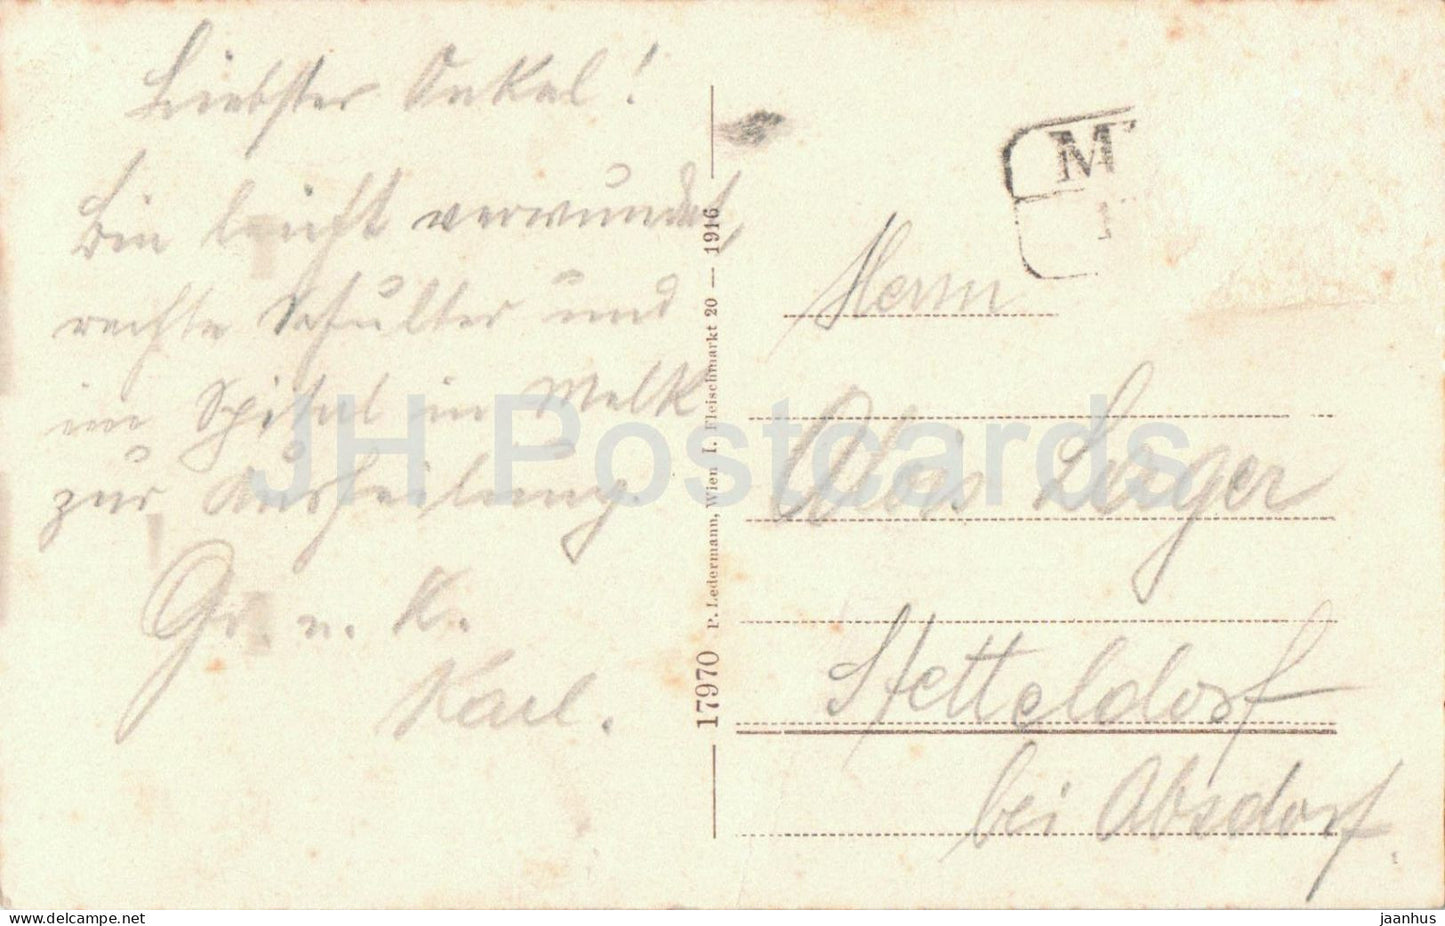 Liebster Onkel!
Bin leicht verwundet,
rechte Schulter und
im Spital in Melk
zur Ausheilung.
Gr. u. K.
Karl.
17970 P. Ledermann, Wien I. Fleischmarkt 20 — 1916
M
Herrn
Alois Luger
Stetteldorf
bei Absdorf.
JH Postcards
hippostcard.com
jaanhus